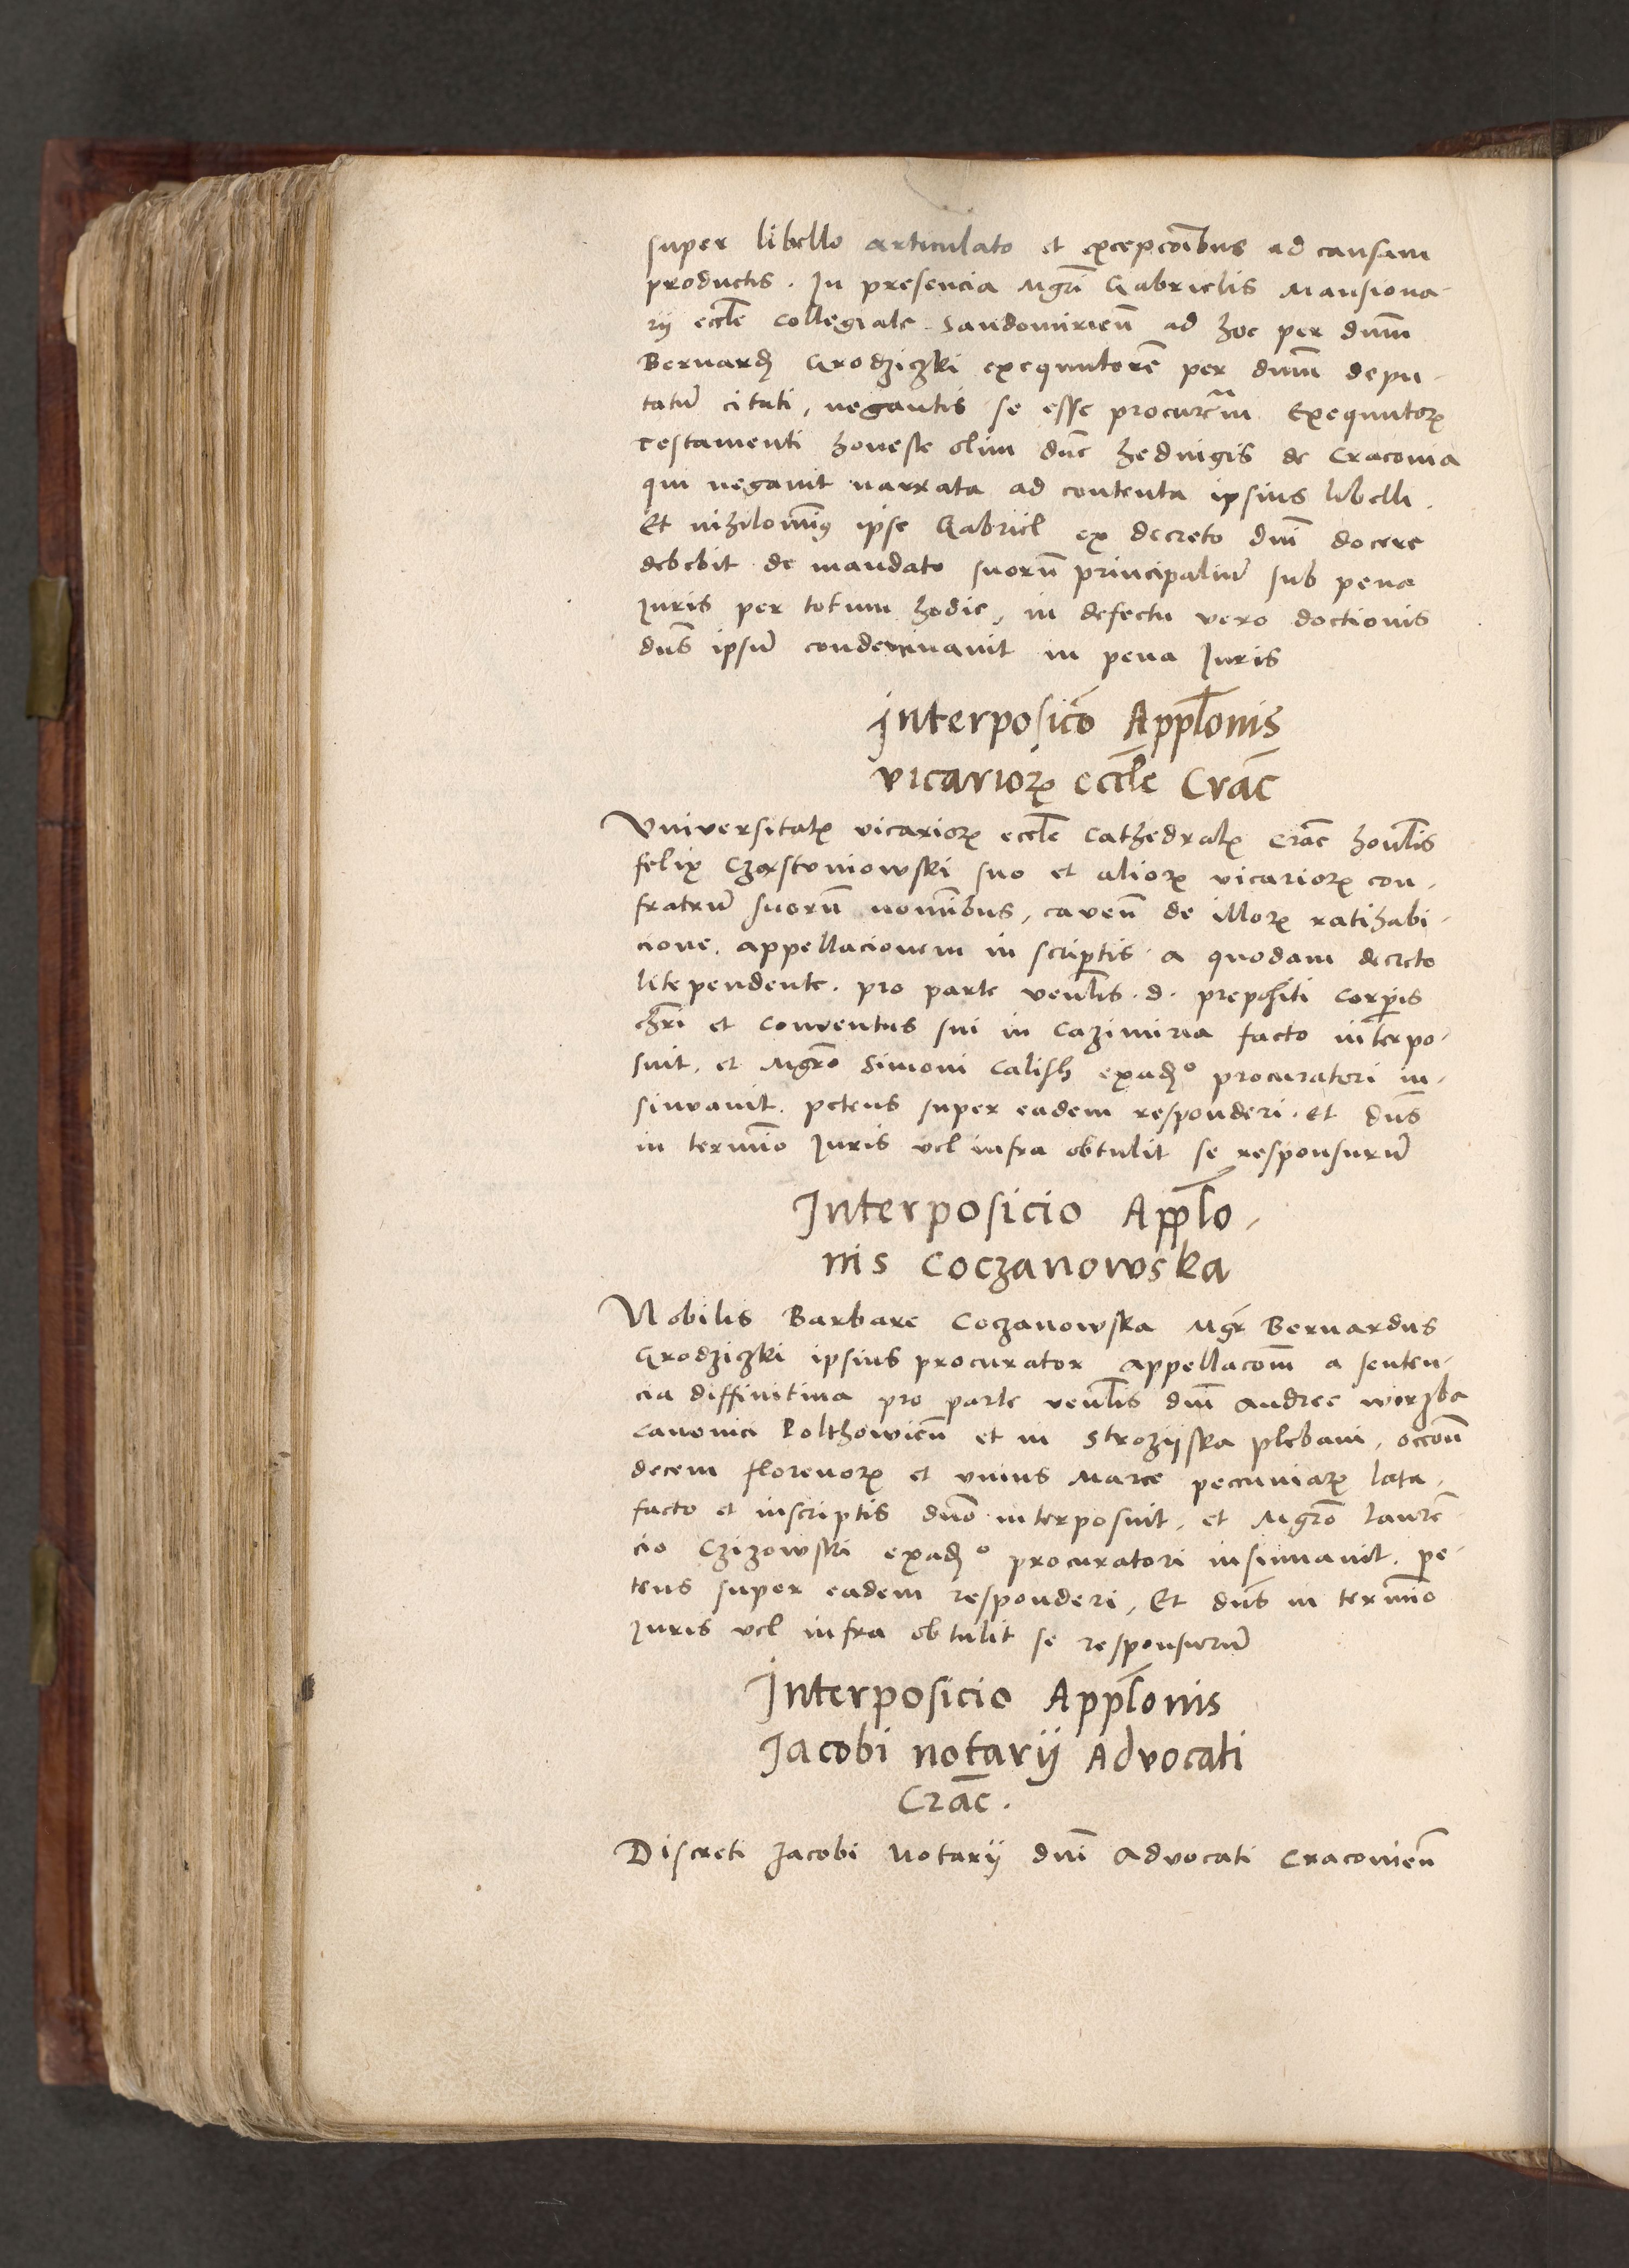 super libello articulato et excepcōibus ad causam
productis. In presencia Mgrī Gabrielis Mansiona-
rij eccłe Collegiate Sandomirieñ ad hoc per dnūm
Bernardꝫ Grodziczki exequutorē per dnūm depu-
tatū citati, negantis se esse procurem Exequutorꝝ
testamenti honeste olim dnē Hedvigis de Cracovia
qui negavit narrata ad contenta ipsius libelli.
Et nihilomīꝰ ipse Gabriel ex decreto dnī docere
debebit de mandato suorū principaliū sub pena
Juris per totum hodie, in defectu vero doctionis
dns̄ ipsū condemnavit in pena Juris
Interposicō Applōnis
vicariorꝝ eccłe Crāc
Vniversitatꝭ vicariorꝝ eccłe Cathedralꝭ Crāc honłis
felix Czarstoniowski suo et aliorꝝ vicariorꝝ con-
fratrū suorū nomībus, caveñ de illorꝝ ratihabi-
cione. appellacionem in scriptis a quodam decreto
lite pendente. pro parte venłis. d. prepositi Corpꝛis
chri et Conventus sui in Cazimiria facto interpo-
suit. et Mgrō Simoni Calish exadꝫº procuratori in-
sinuavit. petens super eadem responderi. et dns̄
in termīo Juris vel infra obtulit se responsurū
Interposicio Applō-
nis Coczanowska
Nobilis Barbare Coczanowska Mgr̄ Bernardus
Grodziczki ipsius procurator appellacōm a senten-
cia diffinitiva pro parte venłis dnī Andree wirzba
Canonici Polthowieñ et in Strozijska plebani, occōn̄
decem florenorꝝ et vnius Marce pecuniarꝝ lata,
facto et inscriptis dnō interposuit, et Mgrō laurē
cio Czizowski exadꝫº procuratori insinuavit. pe-
tens super eadem responderi, Et dns̄ in termīo
Juris vel infra obtulit se responsurū
Interposicio Applōnis
Jacobi notarij Advocati
Crāc.
Discreti Jacobi Notarij dnī Advocati Cracovieñ